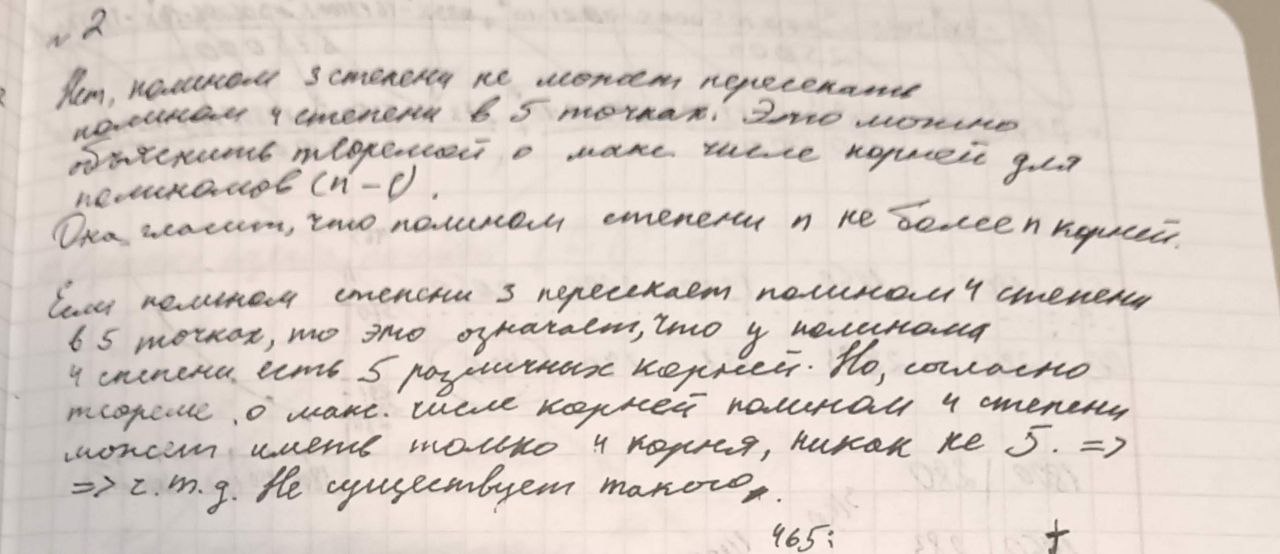 № 2
Нет, полином 3 степени не может пересекать
полином 4 степени в 5 точках. Это можно
объяснить теоремой о макс. числе корней для
полиномов (n-1).
Она гласит, что полином степени n не более n корней.
Если полином степени 3 пересекает полином 4 степени
в 5 точках, то это означает, что у полинома
4 степени есть 5 различных корней. Но, согласно
теореме о макс. числе корней полином 4 степени
может иметь только 4 корня, никак не 5. =>
=> ч.т.д. Не существует такого.
465: